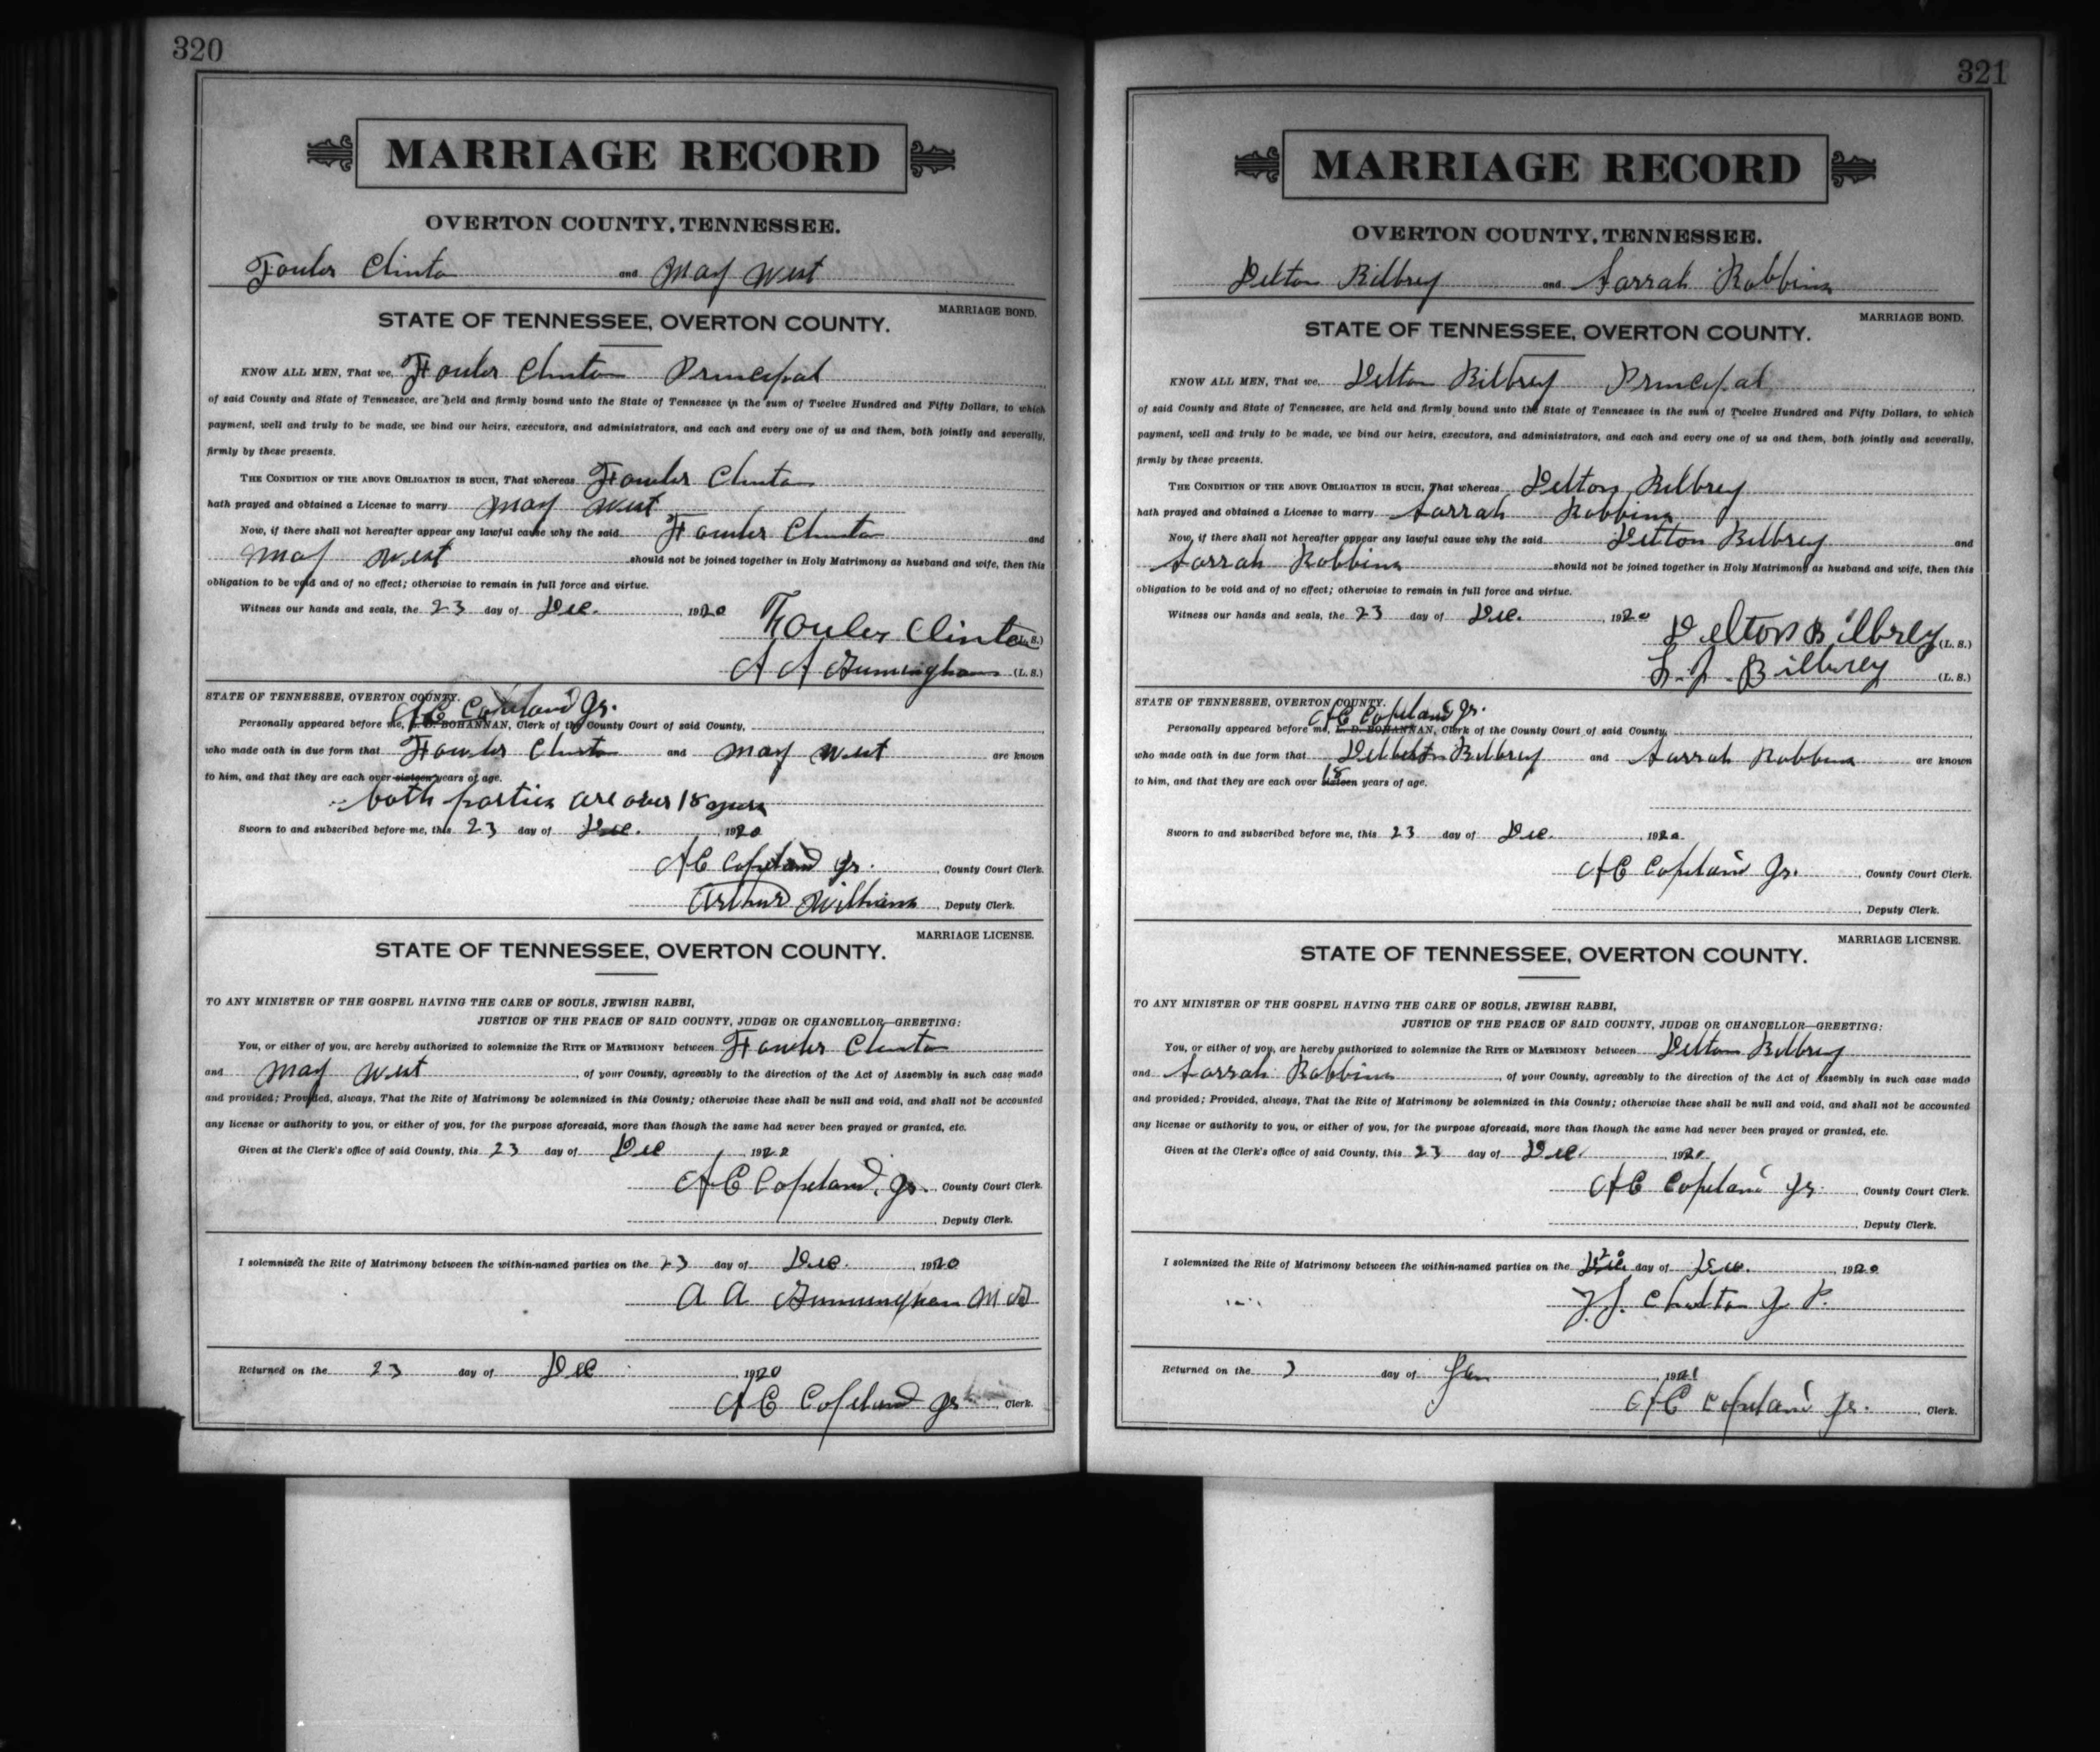 320
MARRIAGE RECORD
OVERTON COUNTY, TENNESSEE.
Fowler Clinton and May West
MARRIAGE BOND.
STATE OF TENNESSEE, OVERTON COUNTY.
KNOW ALL MEN, That we, Fowler Clinton Principal
of said County and State of Tennessee, are held and firmly bound unto the State of Tennessee in the sum of Twelve Hundred and Fifty Dollars, to which
payment, well and truly to be made, we bind our heirs, executors, and administrators, and each and every one of us and them, both jointly and severally,
firmly by these presents.
THE CONDITION OF THE ABOVE OBLIGATION IS SUCH, That whereas Fowler Clinton
hath prayed and obtained a License to marry May West
Now, if there shall not hereafter appear any lawful cause why the said Fowler Clinton and
May West should not be joined together in Holy Matrimony as husband and wife, then this
obligation to be void and of no effect; otherwise to remain in full force and virtue.
Witness our hands and seals, the 23 day of Dec. 1920
Fowler Clinton (L. S.)
A A (L. S.)
STATE OF TENNESSEE, OVERTON COUNTY.
AC Copeland Jr.
Personally appeared before me, L. D. BOHANNAN, Clerk of the County Court of said County,
who made oath in due form that Fowler Clinton and May West are known
to him, and that they are each over sixteen years of age.
both parties are over 18 years
Sworn to and subscribed before me, this 23 day of Dec. 1920
AC Copeland Jr. County Court Clerk.
Arthur Williams, Deputy Clerk.
MARRIAGE LICENSE.
STATE OF TENNESSEE, OVERTON COUNTY.
TO ANY MINISTER OF THE GOSPEL HAVING THE CARE OF SOULS, JEWISH RABBI,
JUSTICE OF THE PEACE OF SAID COUNTY, JUDGE OR CHANCELLOR—GREETING:
You, or either of you, are hereby authorized to solemnize the RITE OF MATRIMONY between Fowler Clinton
and May West, of your County, agreeably to the direction of the Act of Assembly in such case made
and provided; Provided, always, That the Rite of Matrimony be solemnized in this County; otherwise these shall be null and void, and shall not be accounted
any license or authority to you, or either of you, for the purpose aforesaid, more than though the same had never been prayed or granted, etc.
Given at the Clerk's office of said County, this 23 day of Dec 1920
AC Copeland, Jr. County Court Clerk.
, Deputy Clerk.
I solemnized the Rite of Matrimony between the within-named parties on the 23 day of Dec. 1920
A A M G
Returned on the 23 day of Dec 1920
AC Copeland Jr Clerk.
321
MARRIAGE RECORD
OVERTON COUNTY, TENNESSEE.
Delton Bilbrey and Sarrah Robbins
MARRIAGE BOND.
STATE OF TENNESSEE, OVERTON COUNTY.
KNOW ALL MEN, That we, Delton Bilbrey Principal
of said County and State of Tennessee, are held and firmly bound unto the State of Tennessee in the sum of Twelve Hundred and Fifty Dollars, to which
payment, well and truly to be made, we bind our heirs, executors, and administrators, and each and every one of us and them, both jointly and severally,
firmly by these presents.
THE CONDITION OF THE ABOVE OBLIGATION IS SUCH, That whereas Delton Bilbrey
hath prayed and obtained a License to marry Sarrah Robbins
Now, if there shall not hereafter appear any lawful cause why the said Delton Bilbrey and
Sarrah Robbins should not be joined together in Holy Matrimony as husband and wife, then this
obligation to be void and of no effect; otherwise to remain in full force and virtue.
Witness our hands and seals, the 23 day of Dec. 1920
Delton Bilbrey (L. S.)
Bilbrey (L. S.)
STATE OF TENNESSEE, OVERTON COUNTY.
AC Copeland Jr.
Personally appeared before me, L. D. BOHANNAN, Clerk of the County Court of said County,
who made oath in due form that Delton Bilbrey and Sarrah Robbins are known
to him, and that they are each over sixteen 18 years of age.
Sworn to and subscribed before me, this 23 day of Dec. 1920
AC Copeland Jr. County Court Clerk.
, Deputy Clerk.
MARRIAGE LICENSE.
STATE OF TENNESSEE, OVERTON COUNTY.
TO ANY MINISTER OF THE GOSPEL HAVING THE CARE OF SOULS, JEWISH RABBI,
JUSTICE OF THE PEACE OF SAID COUNTY, JUDGE OR CHANCELLOR—GREETING:
You, or either of you, are hereby authorized to solemnize the RITE OF MATRIMONY between Delton Bilbrey
and Sarrah Robbins, of your County, agreeably to the direction of the Act of Assembly in such case made
and provided; Provided, always, That the Rite of Matrimony be solemnized in this County; otherwise these shall be null and void, and shall not be accounted
any license or authority to you, or either of you, for the purpose aforesaid, more than though the same had never been prayed or granted, etc.
Given at the Clerk's office of said County, this 23 day of Dec. 1920
AC Copeland Jr. County Court Clerk.
, Deputy Clerk.
I solemnized the Rite of Matrimony between the within-named parties on the day of Dec. 1920
J. P.
Returned on the 3 day of Jan 1921
AC Copeland Jr. Clerk.